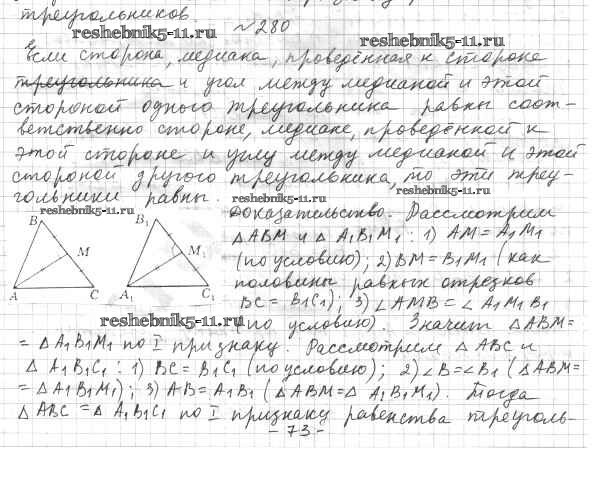 треугольников.
№280
reshebnik5-11.ru
reshebnik5-11.ru
Если сторона, медиана, проведённая к стороне
треугольника и угол между медианой и этой
стороной одного треугольника равны соот-
ветственно стороне, медиане, проведённой к
этой стороне и углу между медианой и этой
стороной другого треугольника, то эти треу-
reshebnik5-11.ru
гольники равны.
reshebnik5-11.ru
reshebnik5-11.ru
B B₁ M M₁ A C A₁ C₁
Доказательство. Рассмотрим
△ABM и △A₁B₁M₁: 1) AM=A₁M₁
(по условию); 2) BM=B₁M₁ (как
половины равных отрезков
BC=B₁C₁); 3) ∠AMB=∠A₁M₁B₁
reshebnik5-11.ru
(по условию). Значит △ABM=
=△A₁B₁M₁ по I признаку. Рассмотрим △ABC и
△A₁B₁C₁: 1) BC=B₁C₁ (по условию); 2) ∠B=∠B₁ (△ABM=
=△A₁B₁M₁); 3) AB=A₁B₁ (△ABM=△A₁B₁M₁). Тогда
△ABC=△A₁B₁C₁ по I признаку равенства треуголь-
-73-